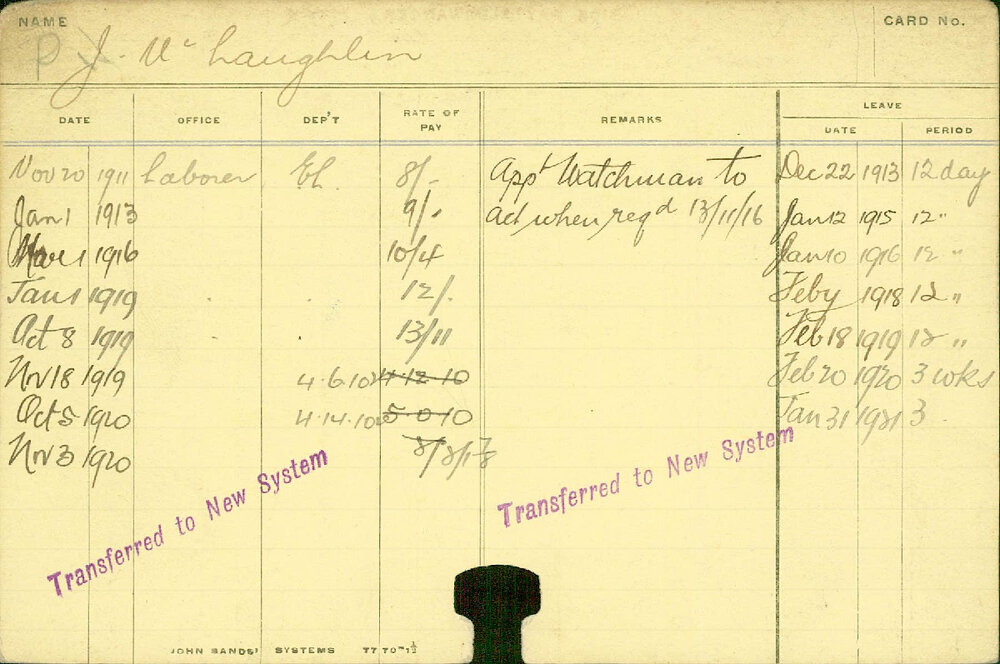 NAME
CARD No.
P J. McLaughlin
LEAVE
DATE OFFICE DEP'T RATE OF PAY REMARKS DATE PERIOD
Nov 20 1911 Laborer El. 8/- App^d Watchman to Dec 22 1913 12 day
Jan 1 1913 9/- act when req^d 13/11/16 Jan 12 1915 12 "
Mar 1 1916 10/4 Jan 10 1916 12 "
Jan 1 1919 12/- Feby 1918 12 "
Oct 8 1919 13/11 Feb 18 1919 12 "
Nov 18 1919 4.6.10 4.12.10 Feb 20 1920 3 wks
Oct 5 1920 4.14.10 5.0.10 Jan 31 1921 3
Nov 3 1920
Transferred to New System
Transferred to New System
JOHN SANDS' SYSTEMS